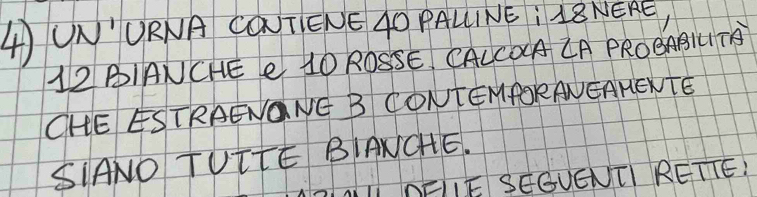 4) UN'URNA CONTIENE 40 PALLINE: 18 NERE,
12 BIANCHE e 10 ROSSE. CALCOLA LA PROBABILITÀ
CHE ESTRAENDONE 3 CONTEMPORANEAMENTE
SIANO TUTTE BIANCHE.
DELLE SEGUENTI RETTE: